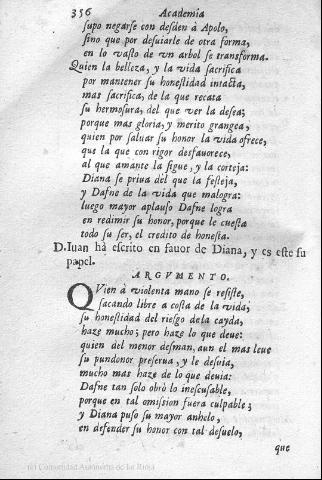 356 Academia
supo negarse con desden à Apolo,
sino que por desuiarle de otra forma,
en lo vasto de vn arbol se transforma.
Quien la belleza, y la vida sacrifica
por mantener su honestidad intacta,
mas sacrifica, de la que recata
su hermosura, del que ver la desea;
porque mas gloria, y merito grangea,
quien por saluar su honor la vida ofrece,
que la que con rigor desfauorece,
al que amante la sigue, y la corteja:
Diana se priua del que la festeja,
y Dafne de la vida que malogra:
luego mayor aplauso Dafne logra
en redimir su honor, porque le cuesta
todo su ser, el credito de honesta.
D. Iuan hà escrito en fauor de Diana, y es este su
papel.
ARGVMENTO.
QVien à violenta mano se resiste,
sacando libre a costa de la vida,
su honestidad del riesgo de la cayda,
haze mucho; pero haze lo que deue:
quien del menor desman, aun el mas leue
su pundonor preserua, y le desuia,
mucho mas haze de lo que deuia:
Dafne tan solo obrò lo inescusable,
porque en tal omission fuera culpable;
y Diana puso su mayor anhelo,
en defender su honor con tal desuelo,
que
(c) Comunidad Autónoma de La Rioja